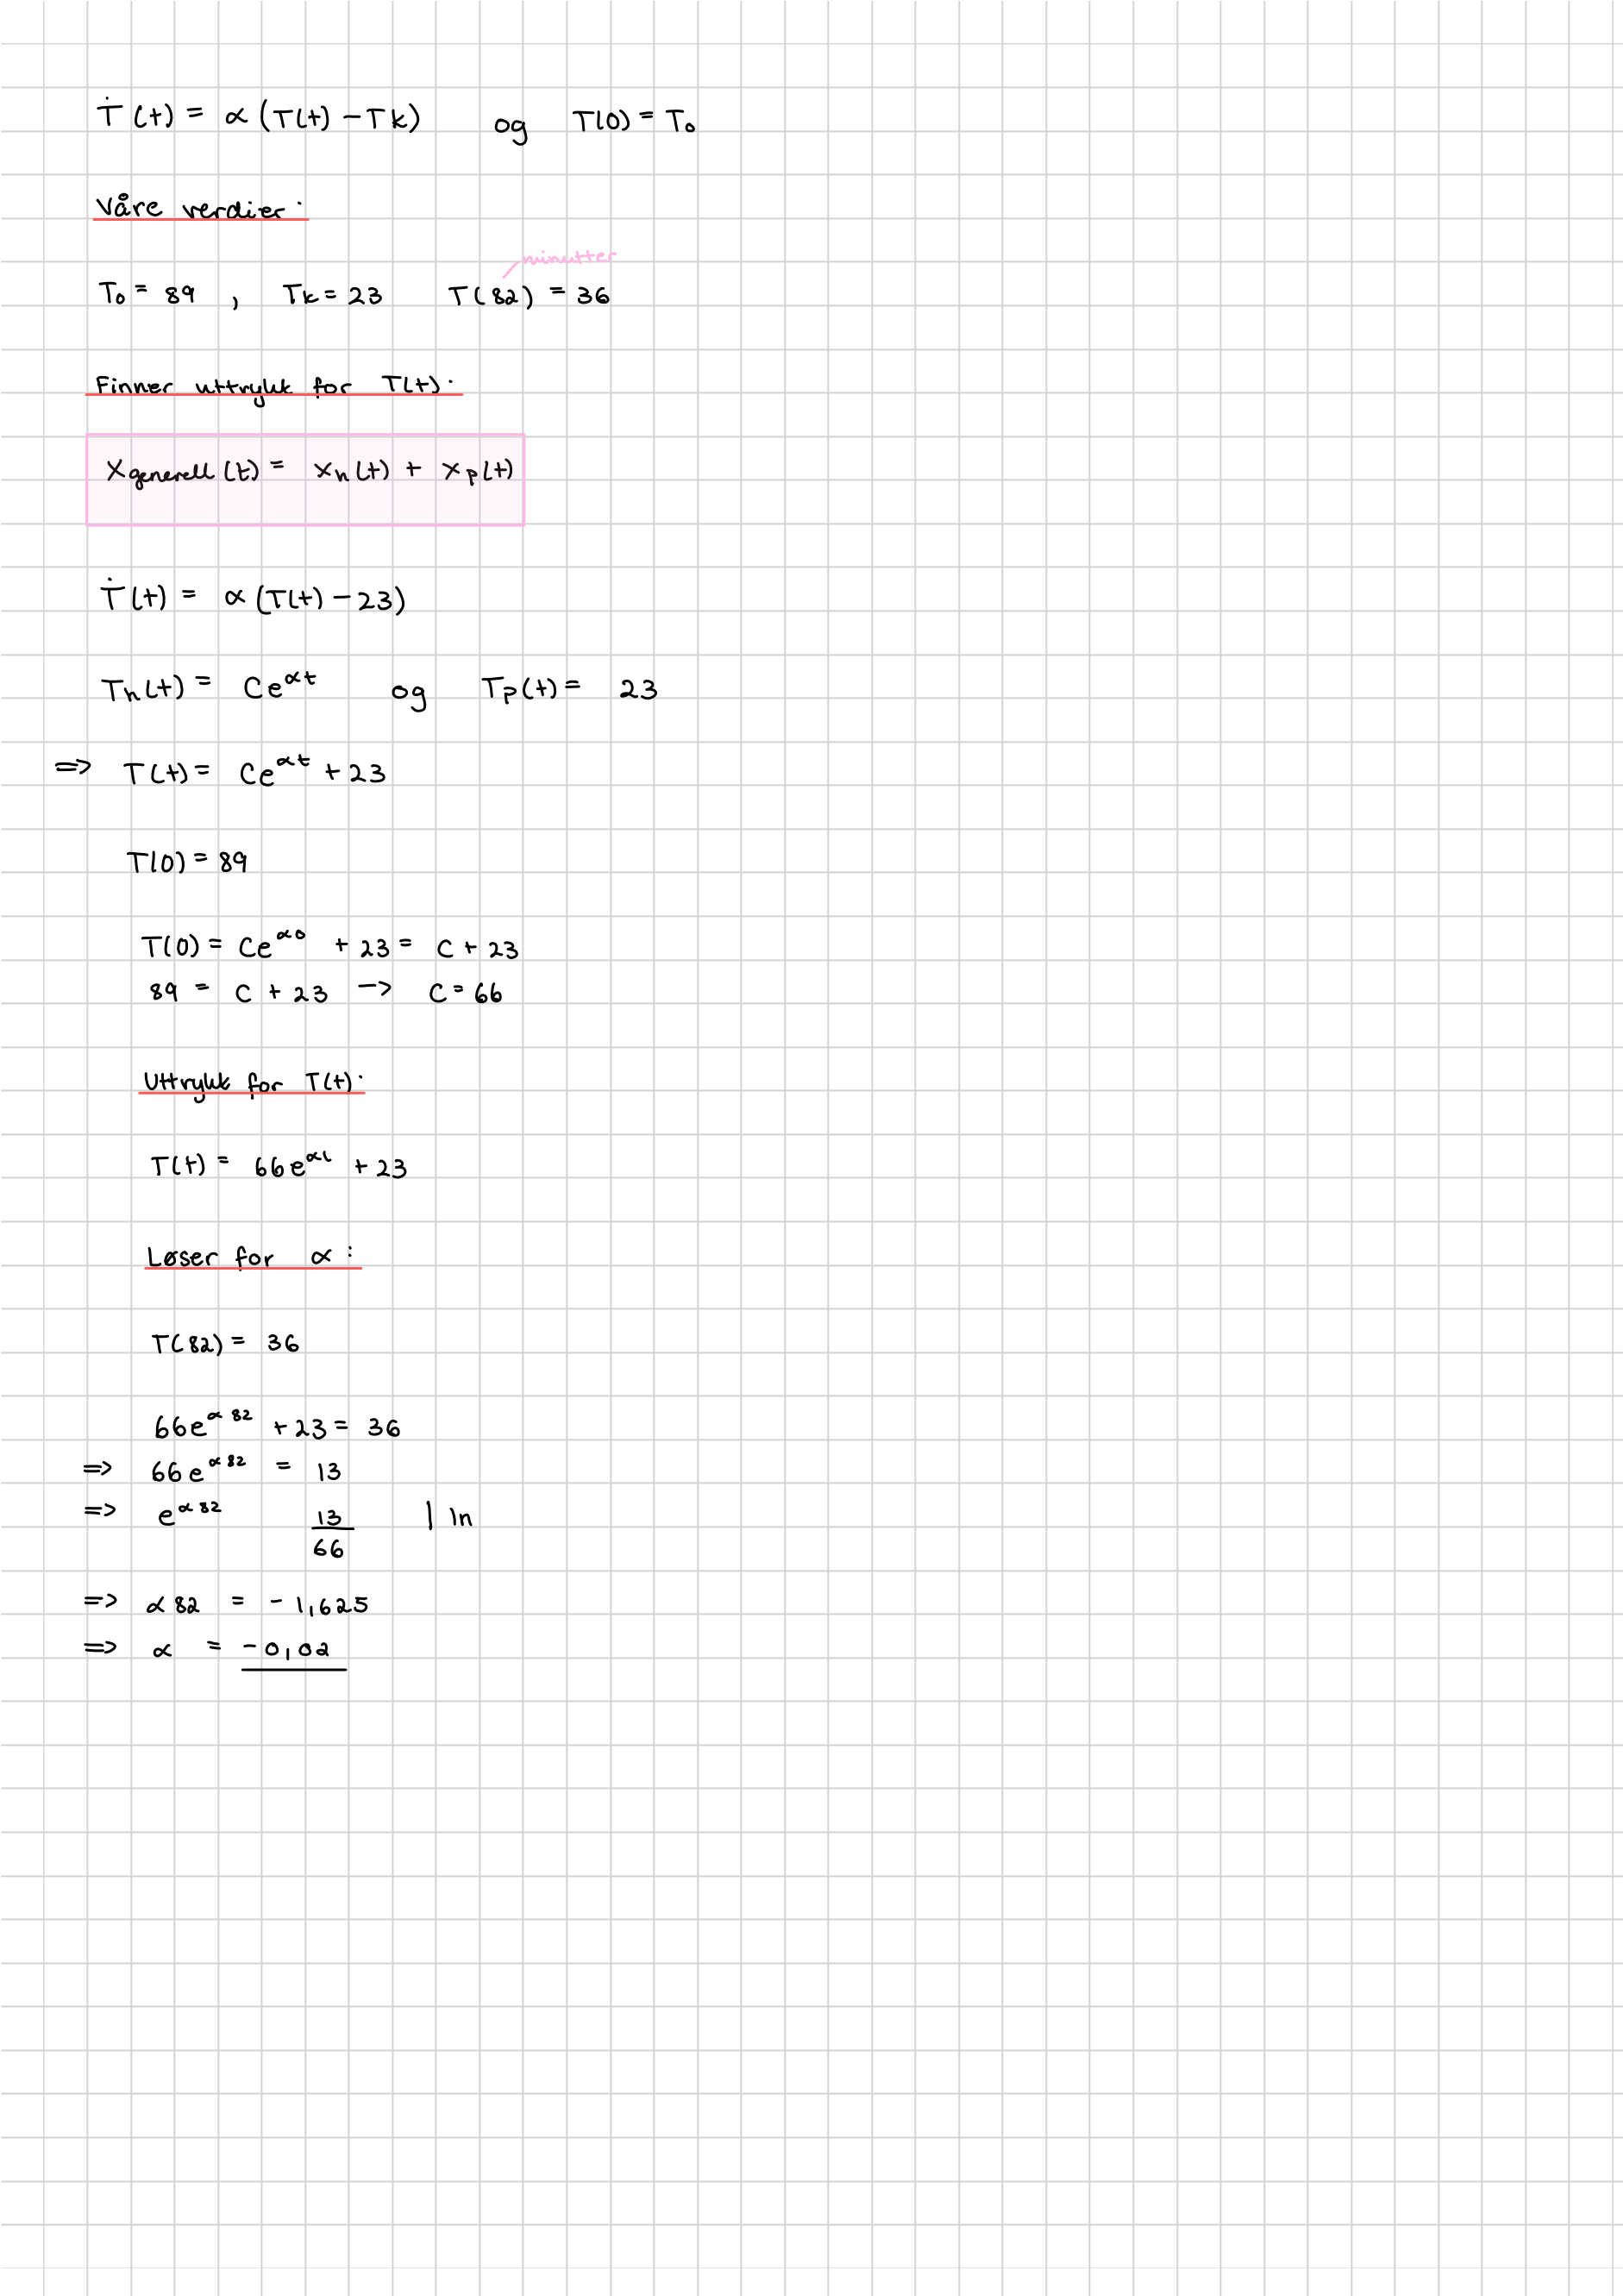 Ṫ(t) = α(T(t) - Tk) og T(0) = T₀
Våre verdier:
minutter
T₀ = 89 , Tk = 23 T(82) = 36
Finner uttrykk for T(t):
Xgenerell(t) = xₕ(t) + xₚ(t)
Ṫ(t) = α(T(t) - 23)
Tₕ(t) = Ce^αt og Tₚ(t) = 23
=> T(t) = Ce^αt + 23
T(0) = 89
T(0) = Ce^α0 + 23 = C + 23
89 = C + 23 -> C = 66
Uttrykk for T(t):
T(t) = 66e^αt + 23
Løser for α:
T(82) = 36
66e^α82 + 23 = 36
=> 66e^α82 = 13
=> e^α82 13/66 | ln
=> α82 = -1,625
=> α = -0,02